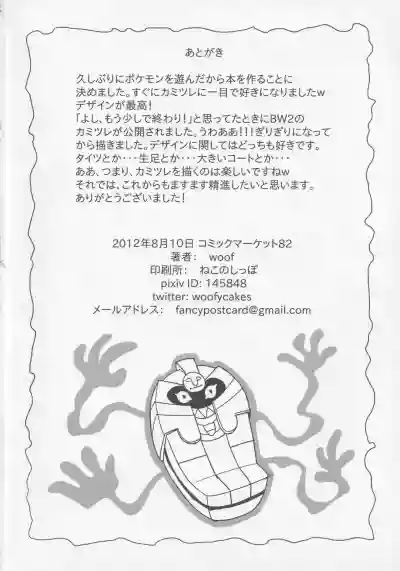 あとがき
久しぶりにポケモンを遊んだから本を作ることに
決めました。すぐにカミツレに一目で好きになりましたw
デザインが最高!
「よし、もう少しで終わり!」と思ってたときにBW2の
カミツレが公開されました。うわああ!!!ぎりぎりになって
から描きました。デザインに関してはどっちも好きです。
タイツとか・・・生足とか・・・大きいコートとか・・・
ああ、つまり、カミツレを描くのは楽しいですねw
それでは、これからもますます精進したいと思います。
ありがとうございました!
2012年8月10日 コミックマーケット82
著者: woof
印刷所: ねこのしっぽ
pixiv ID: 145848
twitter: woofycakes
メールアドレス: fancypostcard@gmail.com